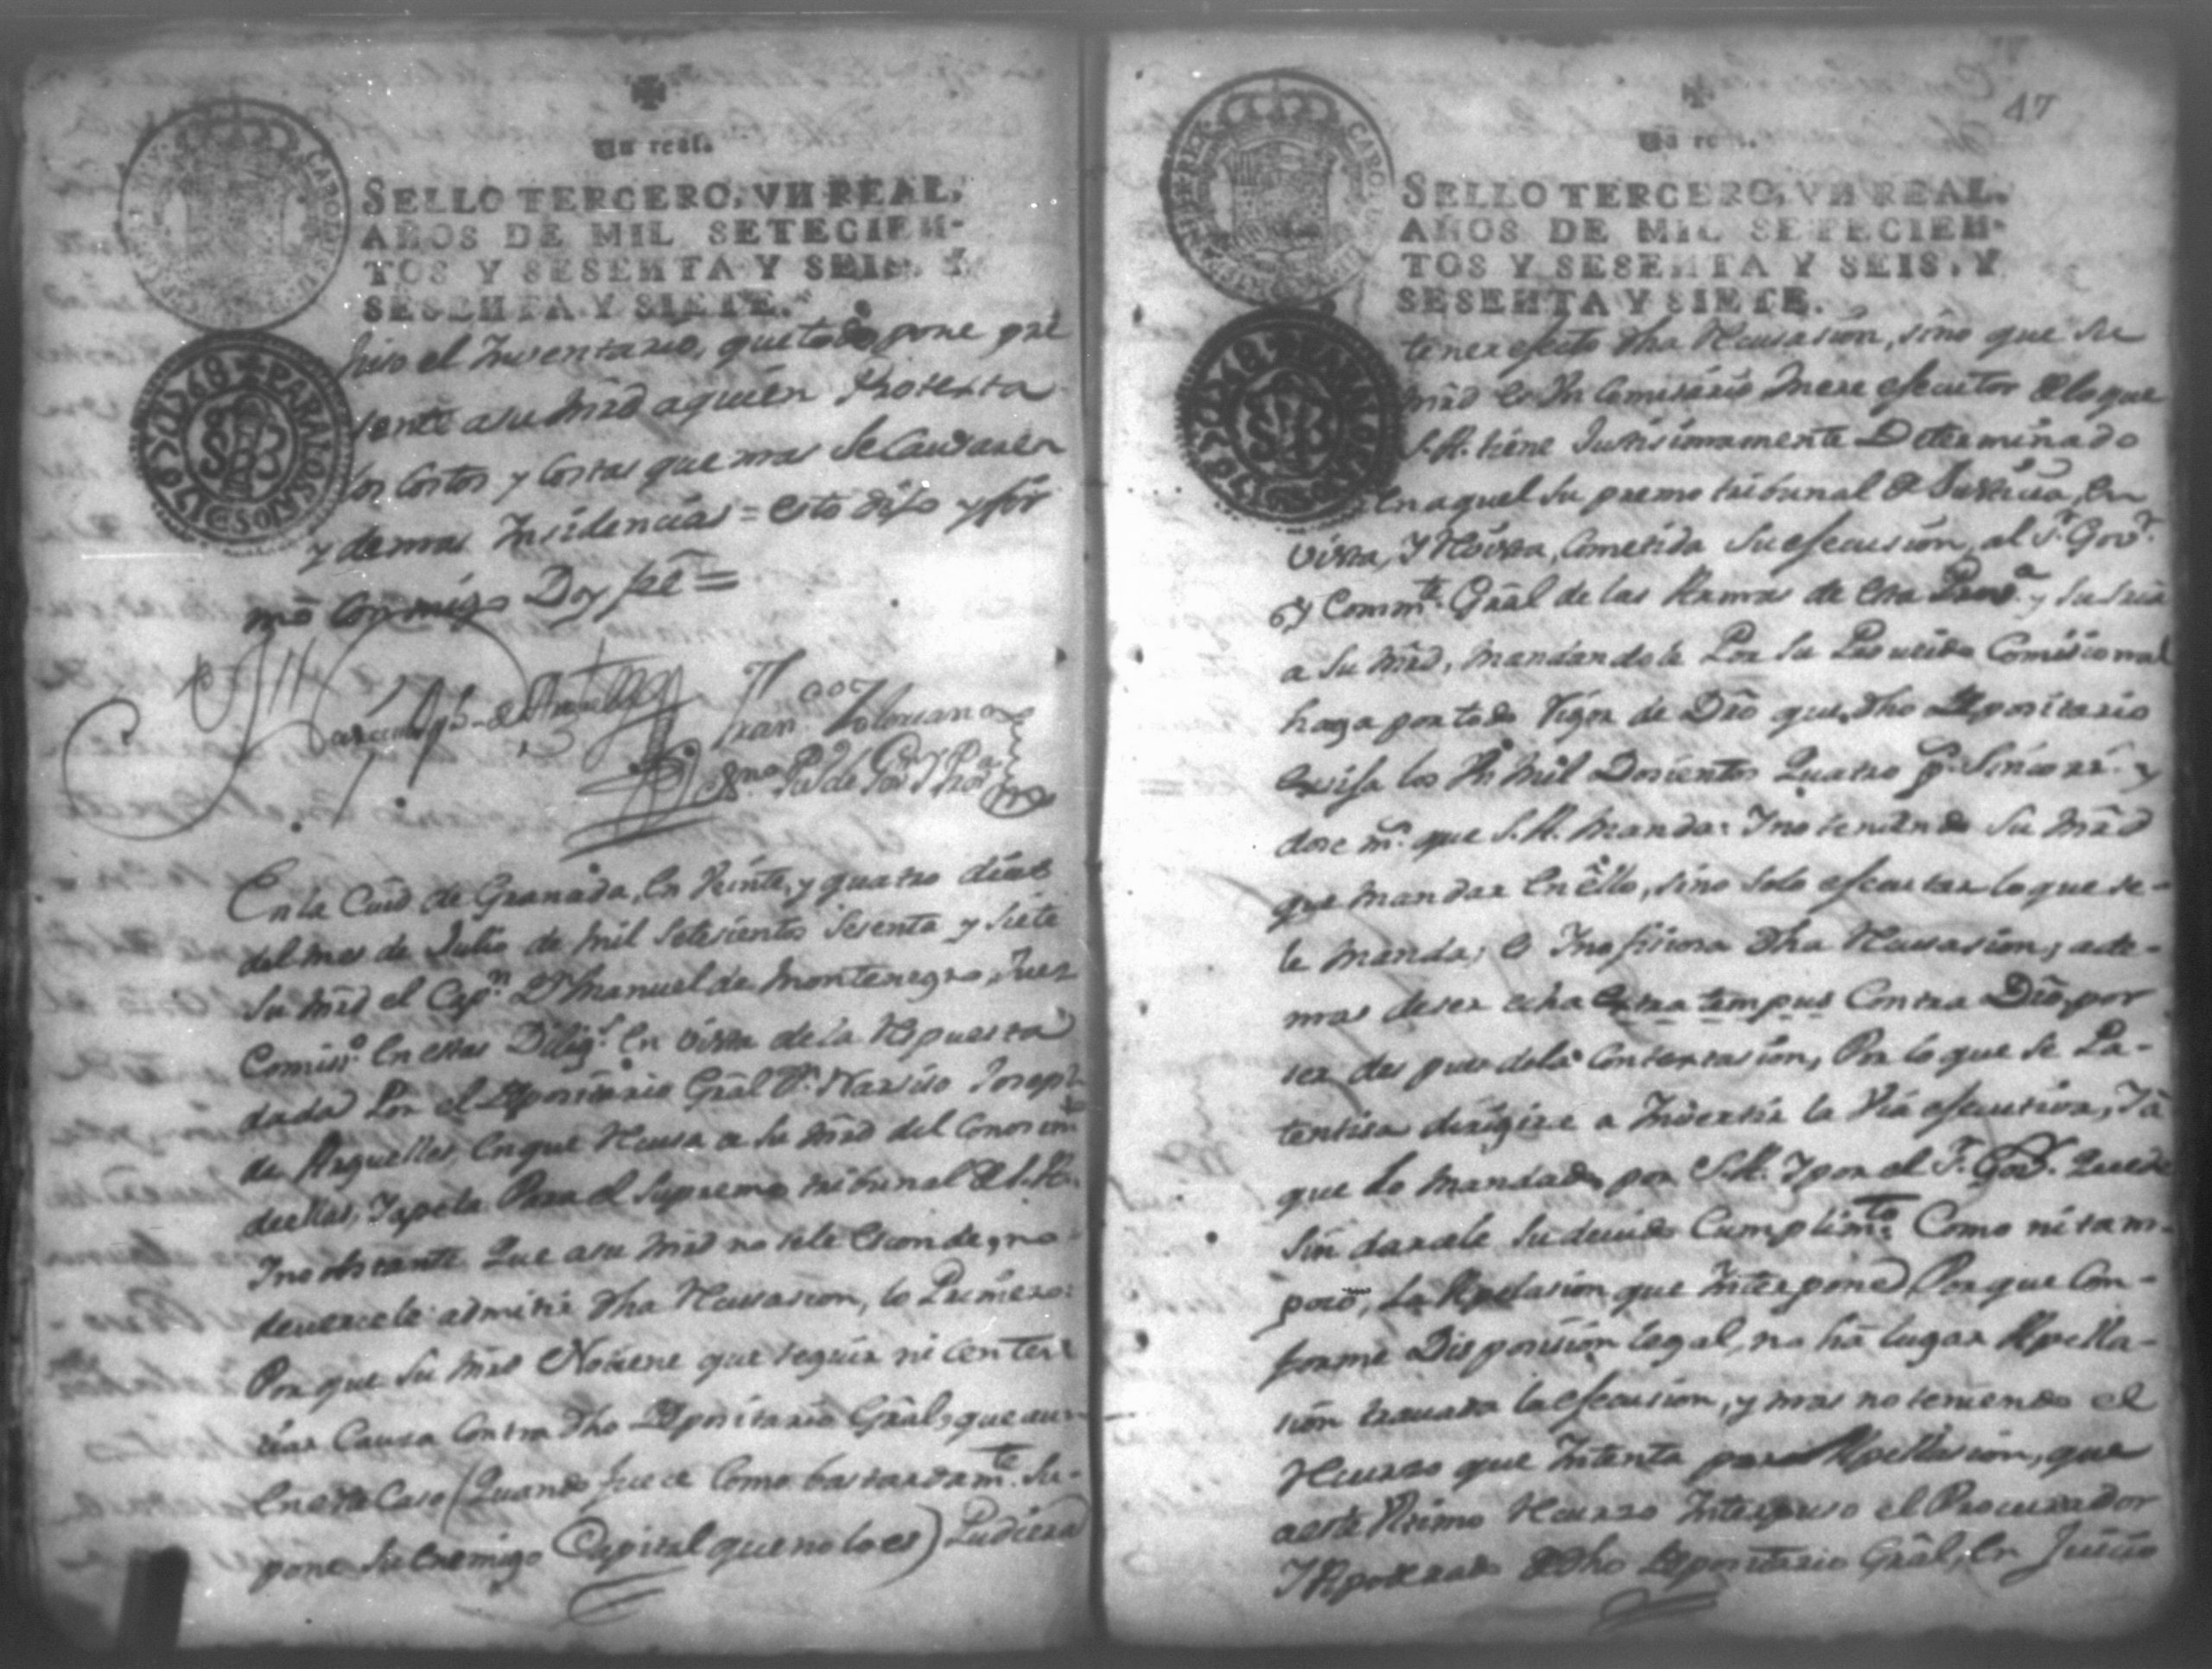 Un real.
SELLO TERCERO, VN REAL,
AÑOS DE MIL SETECIEN-
TOS Y SESENTA Y SEIS, Y
SESENTA Y SIETE.
hiso el Inventario, que todo pone pre
sente a su mrd aquien Protexta
los Costos y Costas que mas se Causaren
y demas Insidencias = esto dijo y fir
mó Conmigo Doy feé =
En la Ciud de Granada, en Veinte, y quatro dias
del mes de Julio de mil setesientos sesenta y siete
Su mrd el Capn. Dn Manuel de Montenegro, Juez
Comiso. en estas Diligs. en vista de la Repuesta
dada Por el Depositario Grãl Dn. Narsiso Joseph
de Arguelles, en que Recusa a su mrd del Conosimto
de ellas, Y apela Para el Supremo tribunal de S.A.
Ino obstante Que a su mrd no se le esconde, no
deversele admitir dha Recusasion, lo Primero:
Por que su mrd No tiene que seguir ni senten
siar Causa Contra dho Depositario Grãl, que aun
en este Caso (Quando fuece Como bastardamte. Su-
pone su enemigo Capital que no lo es) Pudiera
47
Un real.
SELLO TERCERO, VN REAL,
AÑOS DE MIL SETECIEN-
TOS Y SESENTA Y SEIS, Y
SESENTA Y SIETE.
tener efecto dha Recusasion, sino que su
mrd es Un Comisario Mere ejecutor de lo que
S.A. tiene Justisimamente Determinado
en aquel Su premo tribunal de Justicia, en
vista, Y Revista, Cometida Su ejecusion, al Sr. Govr.
y Commte. Grãl de las Armas de esta Prova. y Su Sria
a Su mrd, mandandole Por Su Comisional
haga por todo Rigor de Dro que dho Depositario
exsiva los Un mil Dosientos Quatro ps. Sinco rrs. y
dose ms. que S.A. manda: Y no teniendo Su mrd
que mandar en ello, sino solo ejecutar lo que se-
le manda; es Inofisiosa dha Recusasion, ade-
mas de ser echa extra tempus Contra Dro, por
ser des pues dela Contextasion, Por lo que se Pa-
tentisa dirigirse a Invertir la Via ejecutiva, Y a
que Lo mandado por S.A. Y por el Sr. Govr. Quede
Sin darsele Su devido Cumplimto. Como ni tam-
poco, La Apelasion que Interpone, Por que Con-
forme Disposision legal, no ha lugar Apella-
sion travada la ejecusion, y mas no teniendo el
Recurso que Intenta para Apellasion, que
a este Mismo Recurso Interpuso el Procurador
Y Apoderado de dho Depositario Grãl, en Juicio